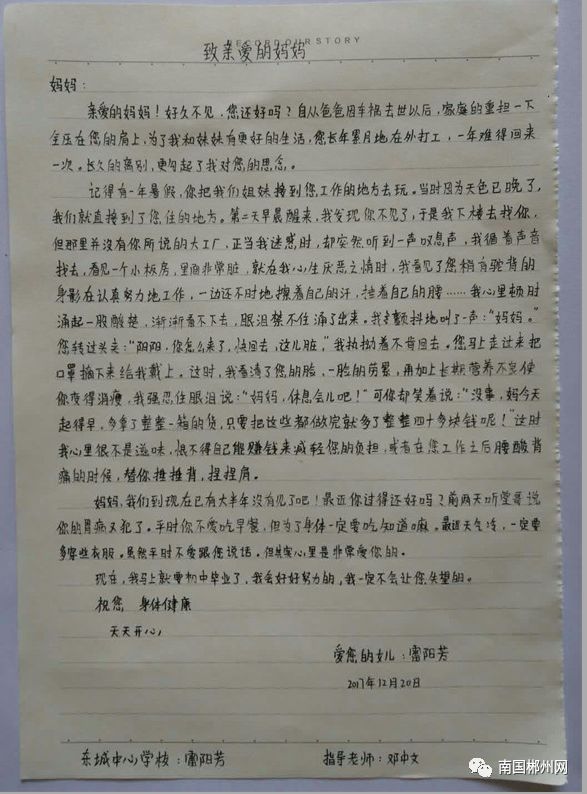 RECORD OUR STORY
致亲爱的妈妈
妈妈：
亲爱的妈妈！好久不见，您还好吗？自从爸爸因车祸去世以后，家庭的重担一下
全压在您的肩上，为了我和妹妹有更好的生活，您长年累月地在外打工，一年难得回来
一次。长久的离别，更勾起了我对您的思念。
记得有一年暑假，你把我们姐妹接到您工作的地方去玩。当时因为天色已晚了，
我们就直接到了您住的地方。第二天早晨醒来，我发现你不见了，于是我下楼去找你，
但那里并没有你所说的大工厂，正当我迷惑时，却突然听到一声叹息声，我循着声音
找去，看见一个小板房，里面非常脏，就在我心生厌恶之情时，我看见了您稍有驼背的
身影在认真努力地工作，一边还不时地擦着自己的汗，捶着自己的腰……我心里顿时
涌起一股酸楚，渐渐看不下去，眼泪禁不住涌了出来。我颤抖地叫了一声："妈妈。"
您转过头来："阳阳，你怎么来了，快回去，这儿脏，"我执拗着不肯回去。您马上走过来把
口罩摘下来给我戴上。这时，我看清了您的脸，一脸的劳累，再加上长期营养不良使
你变得消瘦，我强忍住眼泪说："妈妈，休息会儿吧！"可你却笑着说："没事，妈今天
起得早，多拿了整整一箱的货，只要把这些都做完就多了整整四十多块钱呢！"这时
我心里很不是滋味，恨不得自己能赚钱来减轻您的负担，或者在您工作之后腰酸背
痛的时候，替你捶捶背，捏捏肩。
妈妈，我们到现在已有大半年没有见了吧！最近你过得还好吗？前两天听堂哥说
你的胃病又犯了。平时你不爱吃早餐，但为了身体一定要吃知道嘛。最近天气冷，一定要
多穿些衣服。虽然平时不爱跟您说话，但其实心里是非常爱你的。
现在，我马上就要初中毕业了，我会好好努力的，我一定不会让您失望的。
祝您 身体健康
天天开心
爱您的女儿：雷阳芳
2017年12月20日
东城中心学校：雷阳芳 指导老师：邓中文
南国郴州网